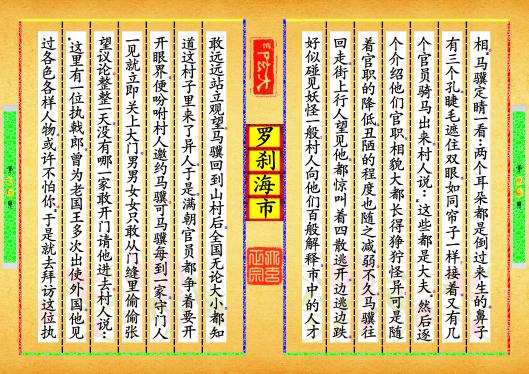 相。马骥定睛一看：两个耳朵都是倒过来生的鼻子
有三个孔睫毛遮住双眼，如同帘子一样接着又有几
个官员骑马出来，村人说：这些都是大夫。然后逐
个介绍他们官职，相貌大都长得狰狞怪异可是随
着官职的降低丑陋的程度也随之减弱不久马骥往
回走街上行人望见他都惊叫着四散逃开边逃边跌
好似碰见妖怪一般村人向他们百般解释市中的人才
罗刹海市
敢远远站立观望马骥回到山村后全国无论大小都知
道这村子里来了异人于是满朝官员都争着要开
开眼界便吩咐村人邀约马骥可马骥每到一家守门人
一见就立即关上大门男男女女只敢从门缝里偷偷张
望议论整整一天没有哪一家敢开门请他进去村人说：
这里有一位执戟郎曾为老国王多次出使外国他见
过各色各样人物或许不怕你。于是就去拜访这位执